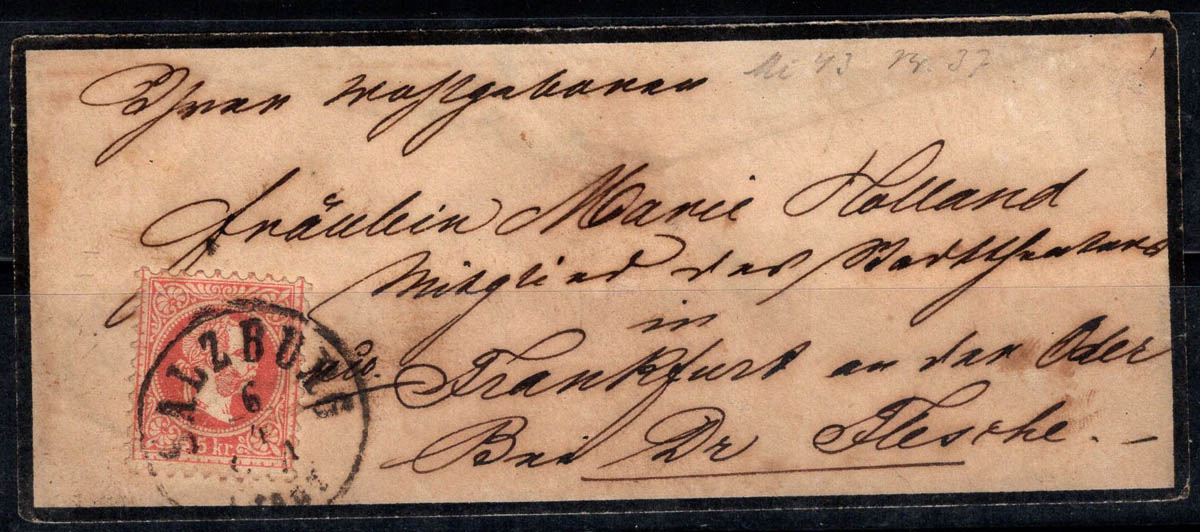 Mi 43 Nr. 37
Ihrer Wohlgeboren
Fräulein Marie Holland
Mitglied des Stadttheaters
in
Frankfurt an der Oder
Bei Dr Flesche.
SALZBURG
6
5 KR